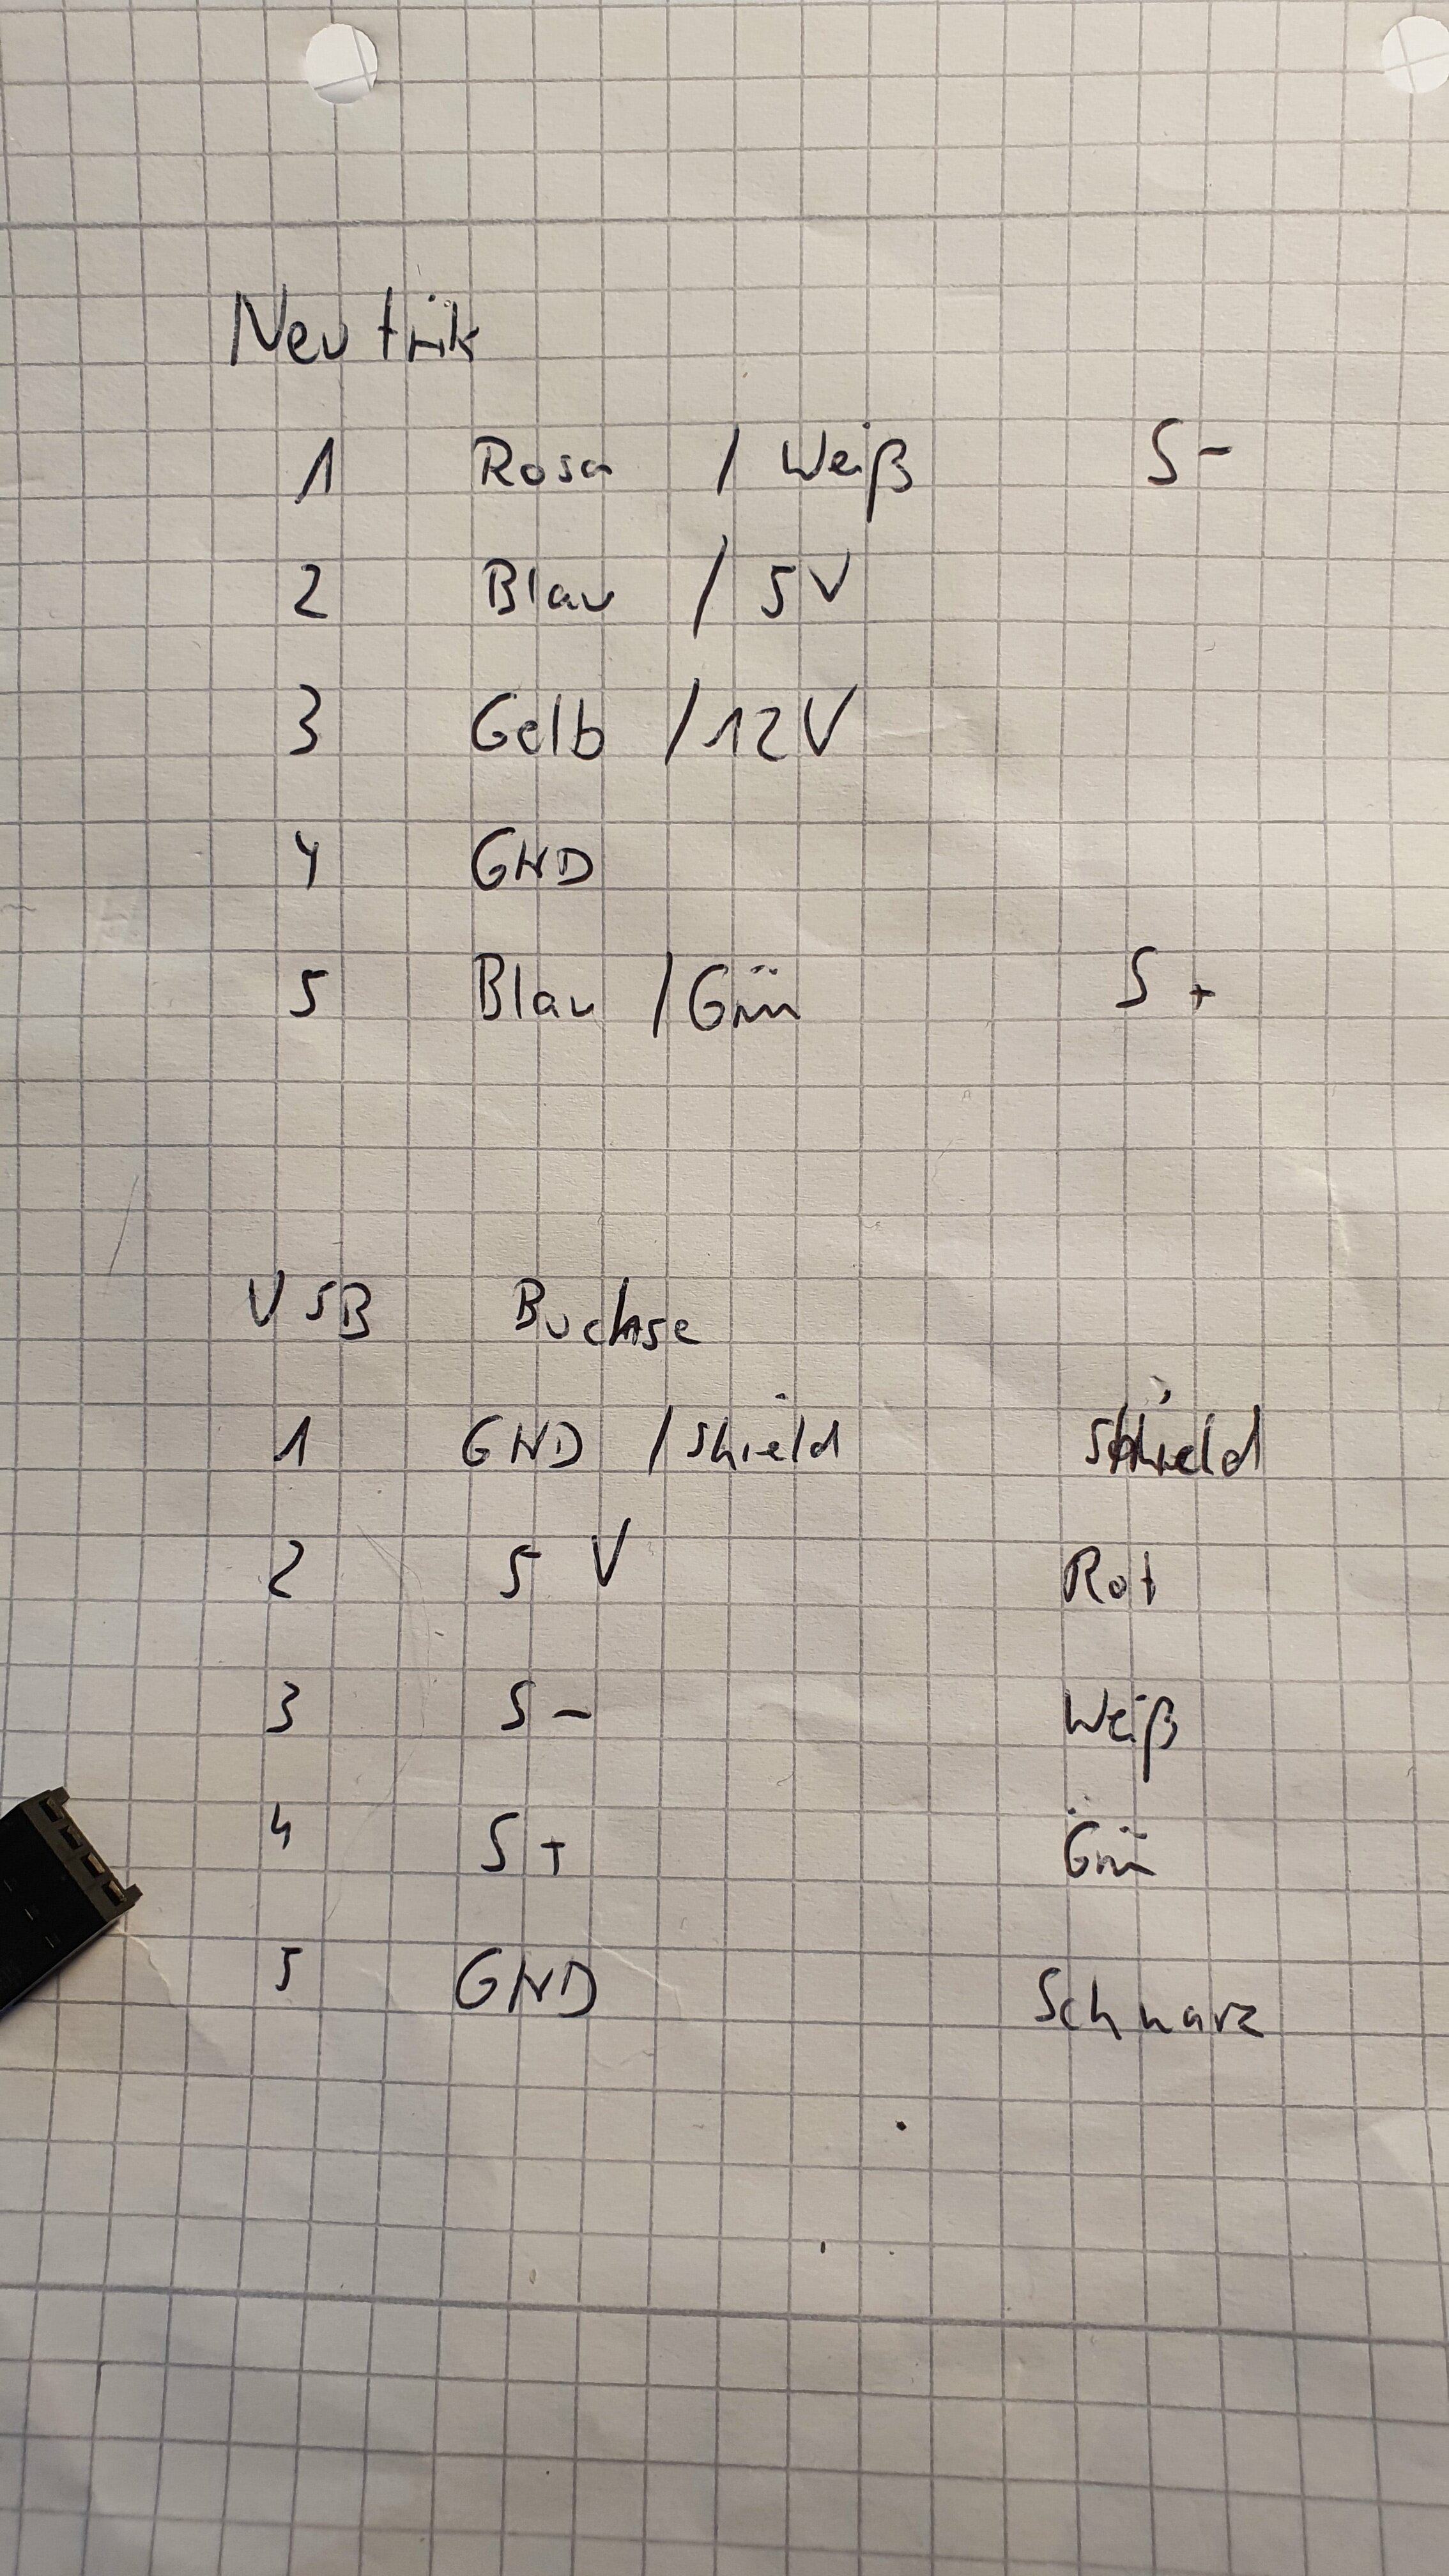 Neutrik
1 Rosa / Weiß S-
2 Blau / 5V
3 Gelb / 12V
4 GND
5 Blau / Grün S+
USB Buchse
1 GND / Shield Shield
2 5 V Rot
3 S- Weiß
4 S+ Grün
5 GND Schwarz